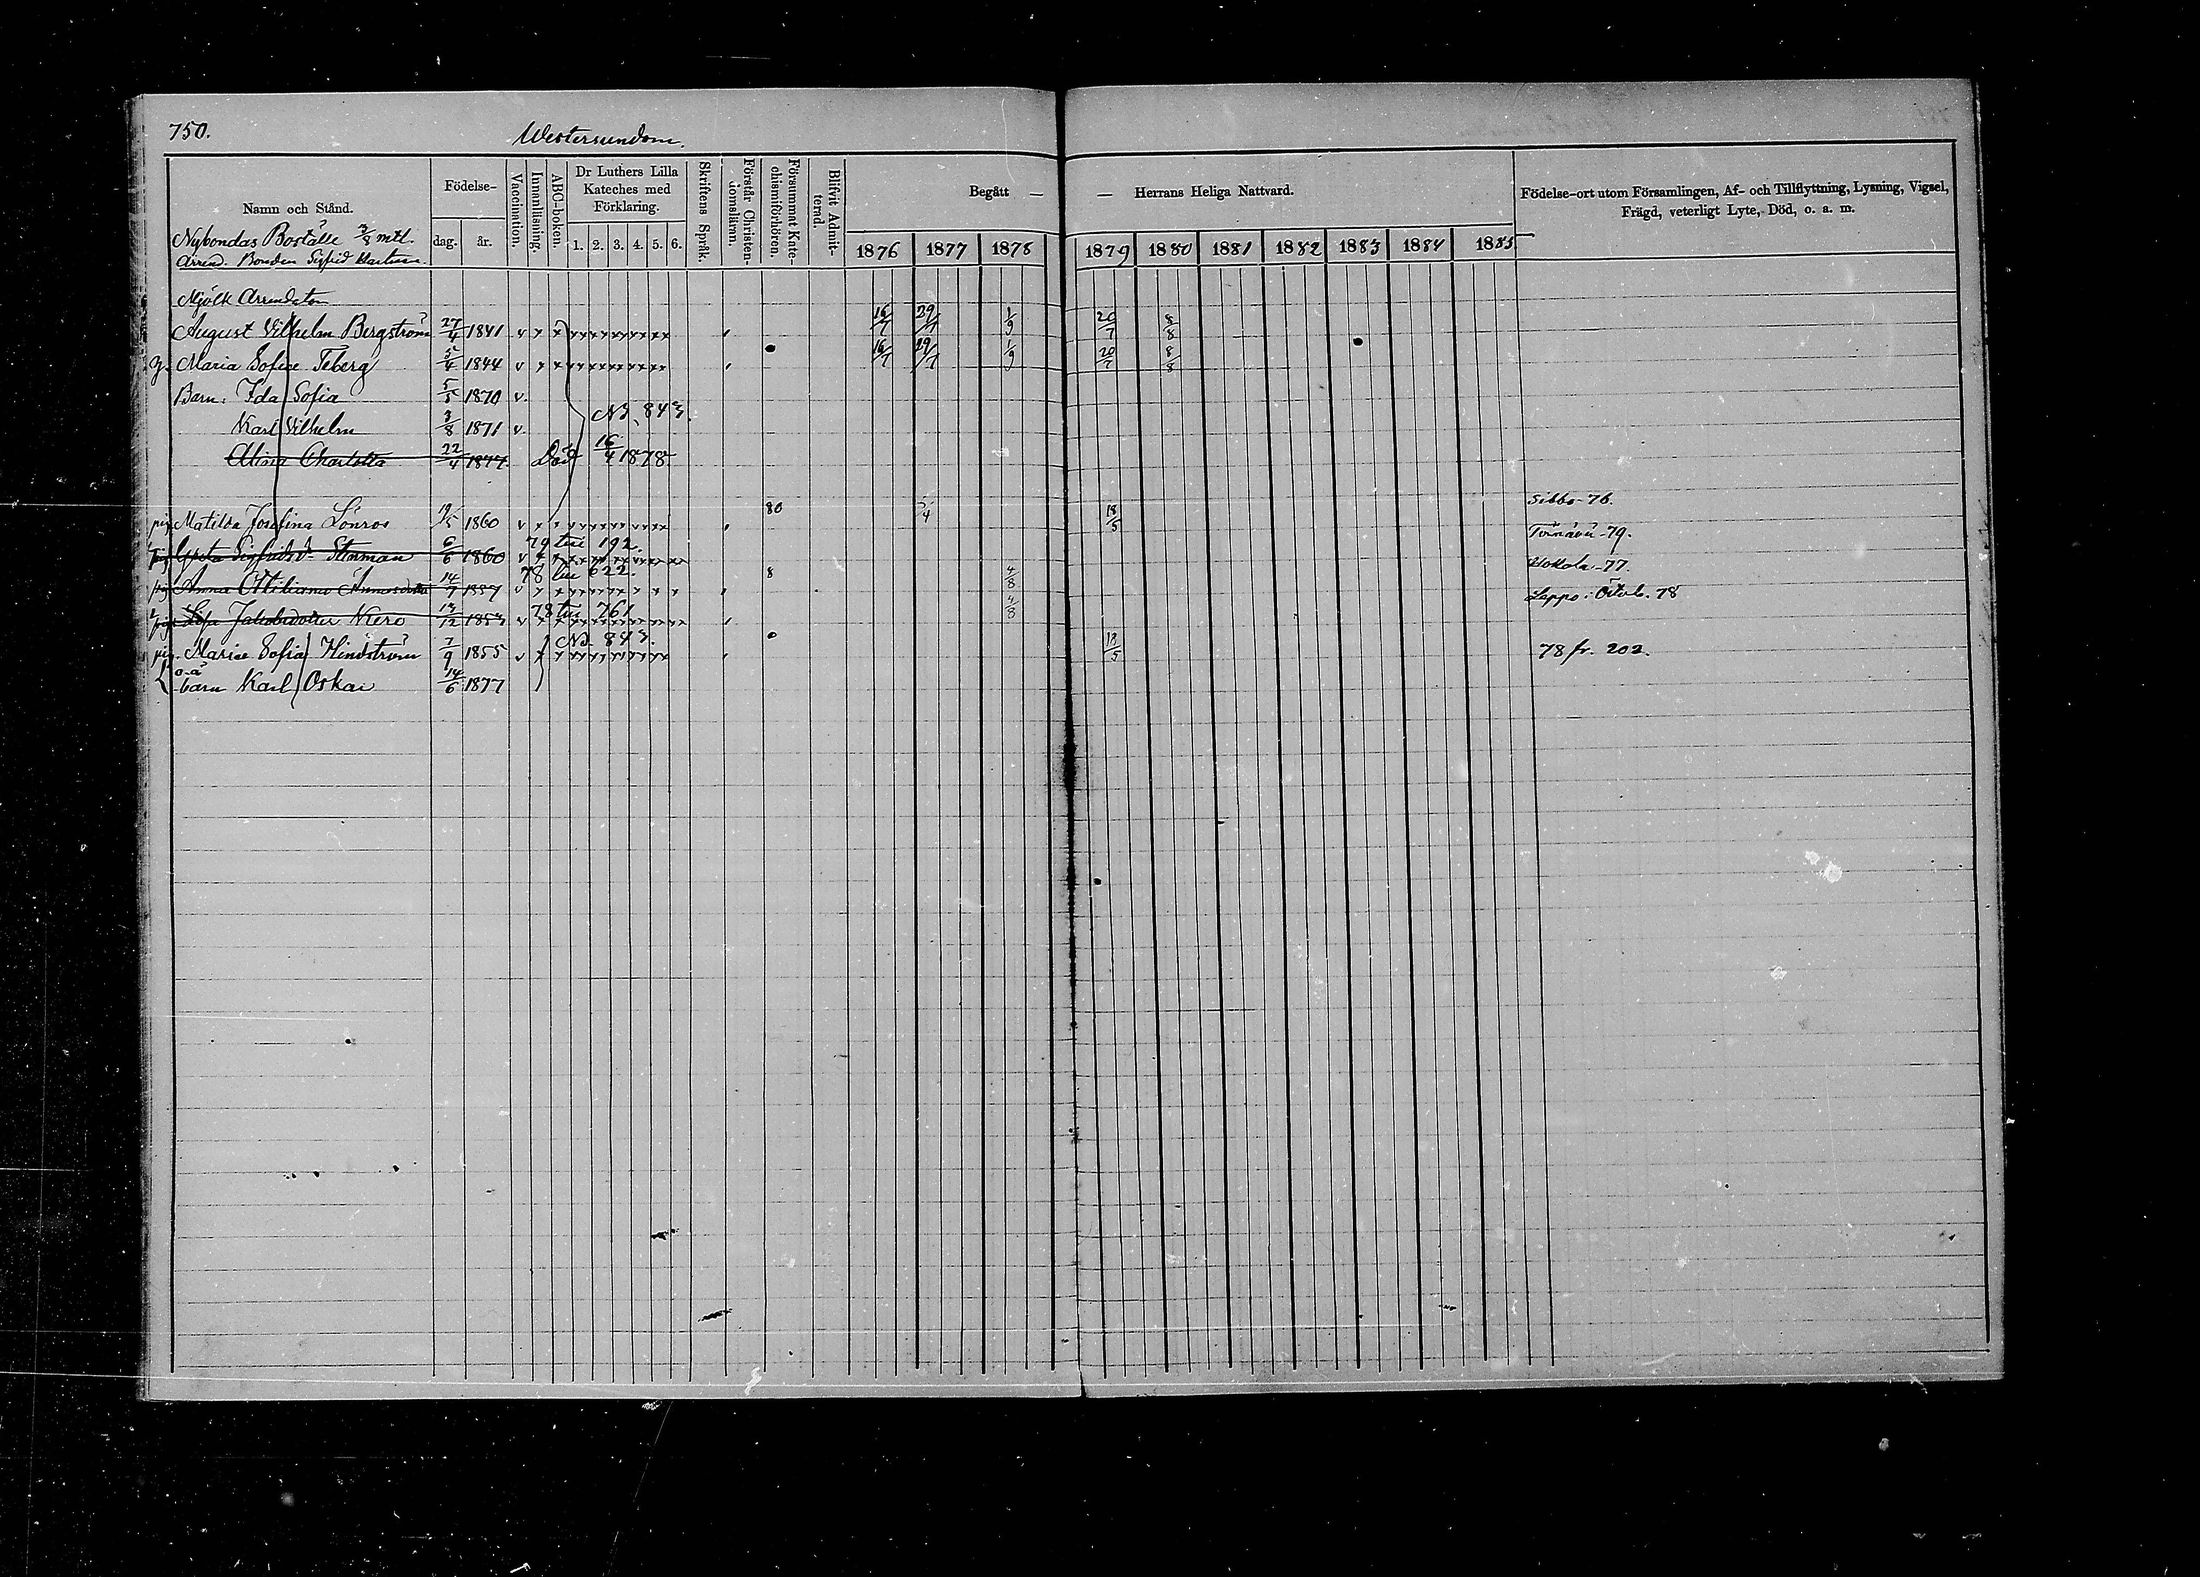 750.
Westersundom.
Namn och Stånd.
Födelse-
dag. år.
Vaccination.
Innanläsning.
ABC-boken.
Dr Luthers Lilla Kateches med Förklaring.
1. 2. 3. 4. 5. 6.
Skriftens Språk.
Förstår Christendomsläran.
Försummat Katechismiförhören.
Blifvit Admitterad.
Begått — — Herrans Heliga Nattvard.
1876 1877 1878 1879 1880 1881 1882 1883 1884 1885
Födelse-ort utom Församlingen, Af- och Tillflyttning, Lysning, Vigsel,
Frägd, veterligt Lyte, Död, o. a. m.
Nybondas Boställe 3/8 mtl.
Arrend. Bonden Sigfrid
Mjölk Arrendator
August Vilhelm Bergström 27/4 1841 v x x x x x x x x x x x 16/7 29/7 1/9 20/7 8/8
Maria Sofia Teberg 5/4 1844 v x x x x x x x x x x x 16/7 29/7 1/9 20/7 8/8
Barn: Ida Sofia 5/5 1870 v.
Karl Vilhelm 3/8 1871 v. N3. 843.
Charlotta 22/4 1877. Död 16/4 1878
pig. Matilda Josefina Lönros 19/5 1860 v x x x x x x x x x x 80 /4 18/5 Sibbo-76.
pig Greta Sigfridsd. Stenman 6/6 1860 v x 79 till 192. -79.
pig Anna 14/7 1857 v x 78 till 622. 8 4/8 -77.
pig. Lisa Jakobsdotter Kero /12 185 v x 78 till 761 4/8 Lappo i Octob. 78
pig. Maria Sofia Hindström 7/9 1855 v x N3. 843. 18/5 78 fr. 202.
o-ä barn Karl Oskar 14/6 1877